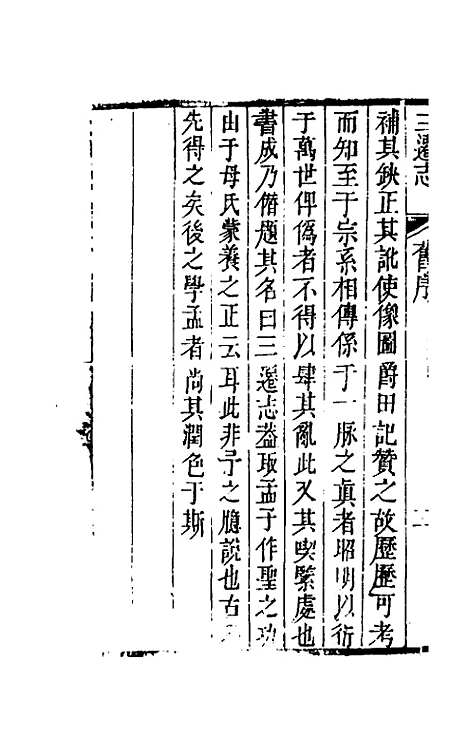 三遷志 舊序 二
補其缺正其訛使像圖爵田記贊之故歷歷可考
而知至于宗系相傳係于一脉之真者昭明以衍
于萬世俾偽者不得以肆其亂此又其喫緊處也
書成乃僭題其名曰三遷志葢取孟子作聖之功
由于母氏蒙養之正云耳此非予之臆說也古
先得之矣後之學孟者尚其潤色于斯